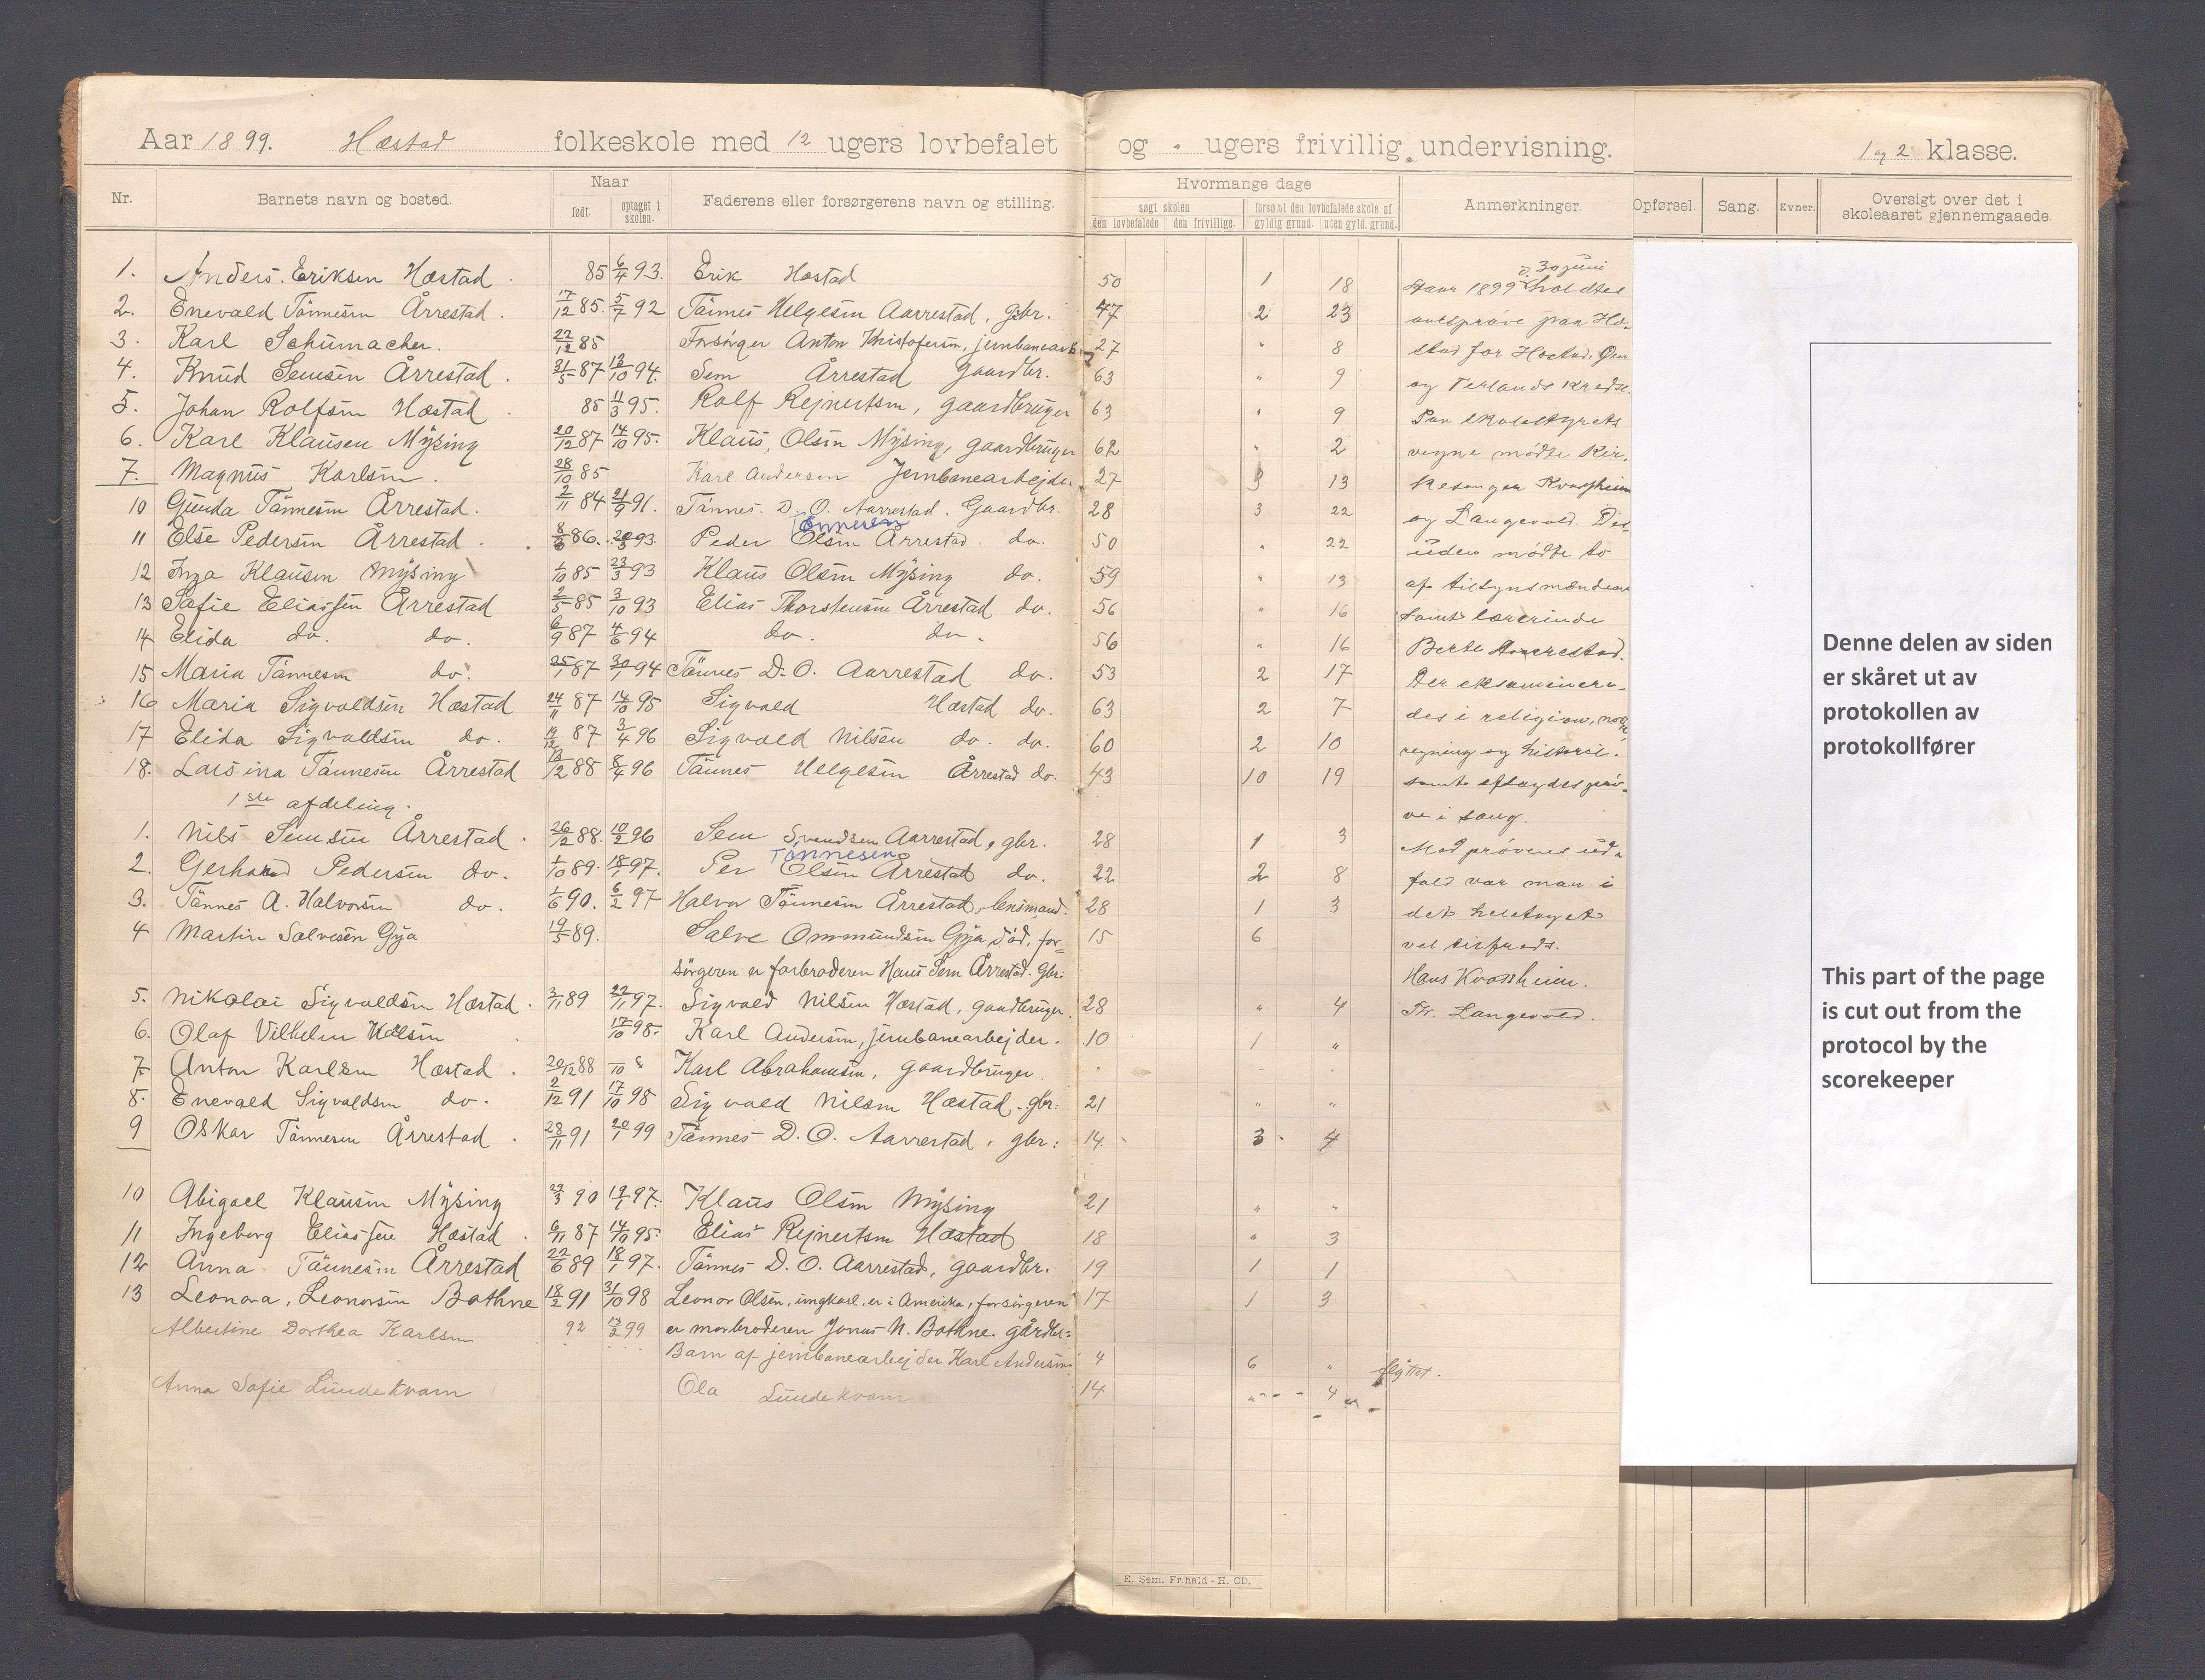 Aar 1899. Hæstad folkeskole med 12 ugers lovbefalet og " ugers frivillig undervisning. 1 og 2 klasse.
Nr. Barnets navn og bosted. Naar født. optaget i skolen. Faderens eller forsørgerens navn og stilling. Hvormange dage søgt skolen den lovbefalede den frivillige. forsømt den lovbefalede skole af gyldig grund. uden gyld. grund. Anmerkninger. Opførsel. Sang. Evner. Oversigt over det i skoleaaret gjennemgaaede.
1. Anders. Eriksen Hæstad 85 6/4 93. Erik Hæstad 50 1 18
2. Enevald Tønnesen Årrestad. 17/12 85. 5/7 92 Tønnes Helgesen Aarrestad, gbr. 47 2 23
3. Karl Schumacher. 22/12 85 Forsørger Anton Kristofersen, jernbanearb. 27 " 8
4. Knud Semsen Årrestad. 31/5 87 13/10 94. Sem Årrestad Gaardbr. 63 " 9
5. Johan Rolfsen Hæstad 85 11/3 95. Rolf Rejnertsen, gaardbruger 63 " 9
6. Karl Klausen Mysing 20/12 87 14/10 95. Klaus Olsen Mysing, gaardbruger 62 " 2
7. Magnus Karlsen. 28/10 85 Karl Andersen Jernbanearbejder 27 3 13
10 Gunda Tønnesen Årrestad. 2/11 84 21/9 91. Tønnes D. O. Aarrestad. Gaardbr. 28 3 22
Tønnesen
11 Else Pedersen Årrestad. 86. 93 Peder Olsen Årrestad do. 50 " 22
12 Inga Klausen Mysing 1/10 85 23/3 93 Klaus Olsen Mysing do. 59 " 13
13 Sofie Eliassen Årrestad 2/5 85 3/10 93 Elias Thorstensen Årrestad do. 56 " 16
14 Elida do. do. 6/9 87 4/6 94 do. do. 56 " 16
15 Maria Tønnesen do. 25/1 87 30/1 94 Tønnes D. O. Aarrestad do. 53 2 17
16 Maria Sigvaldsen Hæstad 24/11 87 14/10 95 Sigvald Hæstad do. 63 2 7
17 Elida Sigvaldsen do. 87 3/4 96 Sigvald Nilsen do. do. 60 2 10
18. Larsina Tønnesen Årrestad 88 8/4 96 Tønnes Helgesen Årrestad do. 43 10 19
1ste afdeling.
1. Nils Semsen Årrestad. 26/12 88. 10/2 96 Sem Svendsen Aarrestad, gbr. 28 1 3
Tønnesen
2. Gerhard Pedersen do. 1/10 89. 18/1 97. Per Olsen Årrestad do. 22 2 8
3. Tønnes A. Halvorsen do. 1/6 90. 6/2 97 Halvor Tønnesen Årrestad, lensmand. 28 1 3
4 Martin Salvesen Gya 19/5 89. Salve Ommundsen Gya død, for=
sørgeren er farbroderen Hans Sem Årrestad. Gbr. 15 6
5. Nikolai Sigvaldsen Hæstad. 3/11 89 22/11 97. Sigvald Nilsen Hæstad, gaardbruger. 28 " 4
6. Olaf Vilhelm 17/10 98. Karl Andersen, jernbanearbejder. 10 1 "
7 Anton Karlsen Hæstad. 20/12 88 Karl Abrahamsen, gaardbruger
8. Enevald Sigvaldsen do. 2/12 91 17/10 98 Sigvald Nilsen Hæstad. gbr. 21 " "
9 Oskar Tønnesen Årrestad. 28/11 91 20/1 99 Tønnes D. O. Aarrestad, gbr. 14 3 4
10 Abigael Klausen Mysing 29/3 90 19/1 97. Klaus Olsen Mysing 21 " "
11 Ingeborg Eliassen Hæstad. 6/11 87 14/10 95. Elias Rejnertsen Hæstad 18 " 3
12 Anna Tønnesen Årrestad 22/6 89 18/1 97. Tønnes D. O. Aarrestad, gaardbr. 19 1 1
13 Leonora, Leonorsen Bothne 18/2 91 31/10 98 Leonor Olsen, ungkarl, er i Amerika, forsørgeren 17 1 3
er morbroderen Jonas N. Bothne. gårdbr.
Albertine Dorthea Karlsen 92 13/2 99 Barn af jernbanearbejder Karl Andersen 4 6 " flyttet.
Anna Sofie Lundekvam Ola Lundekvam 14 " 4
d. 30 juni
Aar 1899 holdtes
aarsprøve paa Hæ-
stad for Hæstad,
og Terlands kreds.
Paa skolestyrets
vegne mødte Kir.
kesanger Kvassheim
og Langevold. Des-
uden mødte to
af tilsynsmændene
samt lærerinde
Berte Aarrestad.
Der eksaminere-
des i religion, norsk,
regning og historie.
samt aflagdes prø-
ve i sang.
Med prøvens ud-
fald var man i
det heletaget
vel tilfreds.
Hans Kvassheim.
Th. Langevold.
E. Sem, Fr.hald - H. CD.
Denne delen av siden
er skåret ut av
protokollen av
protokollfører
This part of the page
is cut out from the
protocol by the
scorekeeper